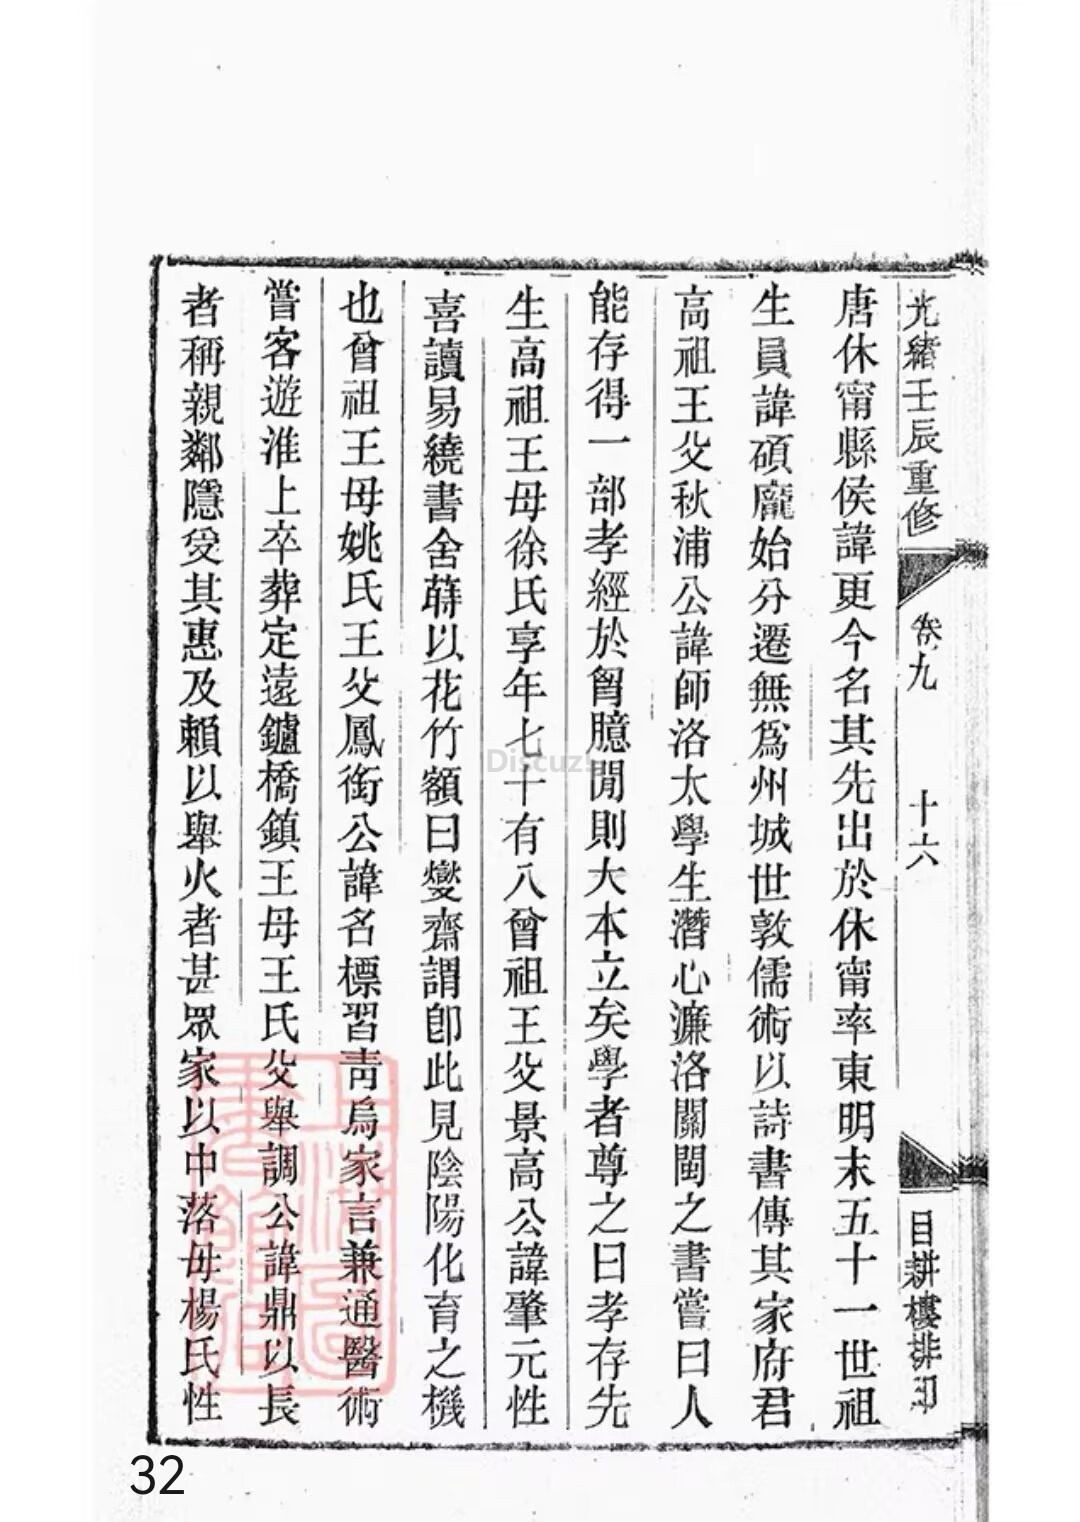 光緒壬辰重修
卷九
十六
目耕樓排印
唐休甯縣侯諱更今名其先出於休甯率東明末五十一世祖
生員諱碩龐始分遷無爲州城世敦儒術以詩書傳其家府君
高祖王父秋浦公諱師洛太學生潛心濂洛關閩之書嘗曰人
能存得一部孝經於胷臆閒則大本立矣學者尊之曰孝存先
生高祖王母徐氏享年七十有八曾祖王父景高公諱肇元性
喜讀易繞書舍蒔以花竹額曰燮齋謂卽此見陰陽化育之機
也曾祖王母姚氏王父鳳銜公諱名標習靑烏家言兼通醫術
嘗客遊淮上卒葬定遠鑪橋鎮王母王氏父舉調公諱鼎以長
者稱親鄰隱受其惠及賴以舉火者甚眾家以中落母楊氏性
Discuz!
32